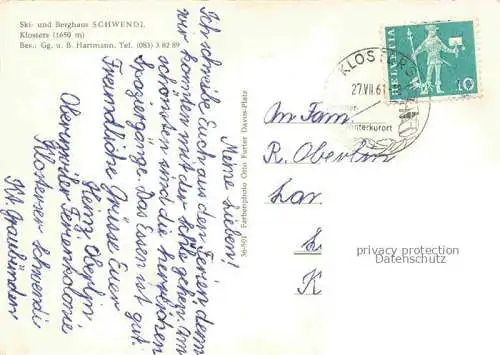 Ski- und Berghaus SCHWENDI.
Klosters (1650 m)
Bes.: Gg. u. B. Hartmann. Tel. (083) 3 82 89
Meine Lieben!
Ich schreibe Euch aus den Ferien, dem
wir konnten mit der gehen. Am
schönsten sind die herrlichen
Spaziergänge. Das Essen ist gut.
Freundliche Grüsse Euer
Heinz Oberlin
Oberwiler Ferienkolonie
Klosterser Schwendi
Kt. Graubünden
36-501 Farbenphoto Otto Furter Davos-Platz
KLOSTERS
27.VII.61
interkurort
HELVETIA
10
An Fam.
R. Oberlin
privacy protection
Datenschutz
K